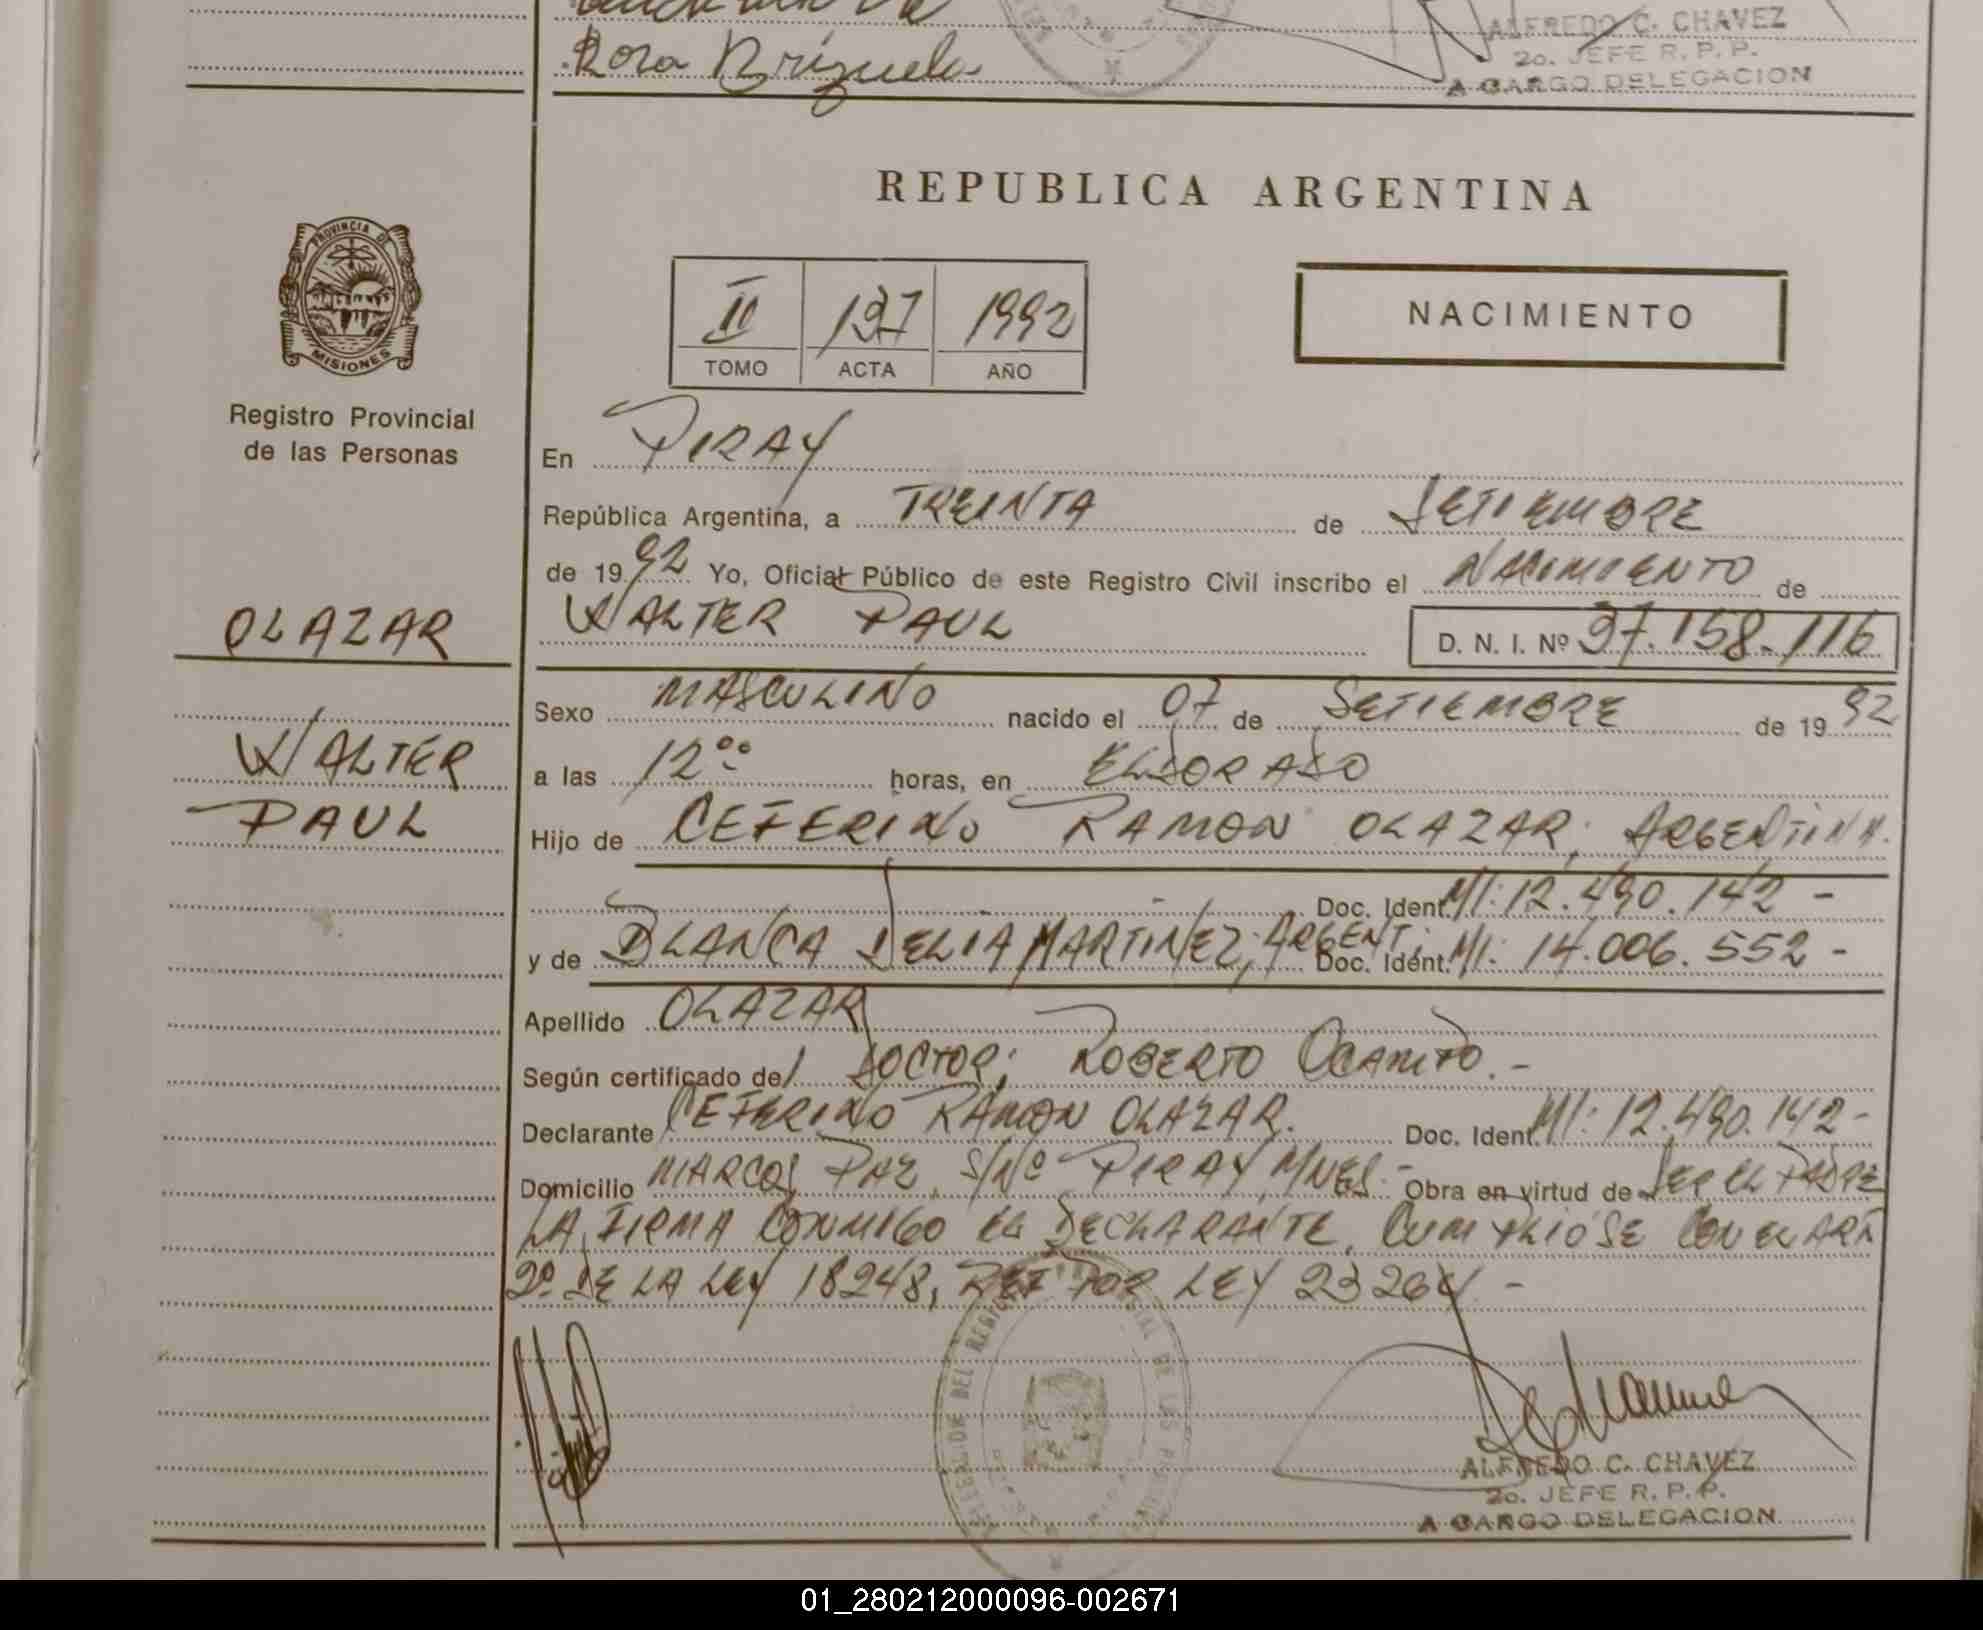 Rosa Brizuela
ALFREDO C. CHAVEZ
2o. JEFE R. P. P.
A CARGO DELEGACION
REPUBLICA ARGENTINA
PROVINCIA DE
MISIONES
II 197 1992
TOMO ACTA AÑO
NACIMIENTO
Registro Provincial
de las Personas
En PIRAY
República Argentina, a TREINTA de SETIEMBRE
de 1992 Yo, Oficial Público de este Registro Civil inscribo el NACIMIENTO de
OLAZAR
WALTER PAUL D. N. I. Nº 37.158.116
Sexo MASCULINO nacido el 07 de SETIEMBRE de 1992
WALTER
a las 12°° horas, en ELDORADO
PAUL
Hijo de CEFERINO RAMON OLAZAR; ARGENTINA.
Doc. Ident. MI: 12.490.142 -
y de BLANCA DELIA MARTINEZ; ARGENT. Doc. Ident. MI: 14.006.552 -
Apellido OLAZAR
Según certificado del DOCTOR; ROBERTO OCAMPO. -
Declarante CEFERINO RAMON OLAZAR. Doc. Ident. MI: 12.490.142 -
Domicilio MARCOS PAZ, S/Nº PIRAY, MNES. - Obra en virtud de SER EL PADRE
LA FIRMA CONMIGO EL DECLARANTE. CUMPLIOSE CON EL ART
2º DE LA LEY 18248, REF POR LEY 23264 -
ALFREDO C. CHAVEZ
2o. JEFE R. P. P.
A CARGO DELEGACION
01_280212000096-002671